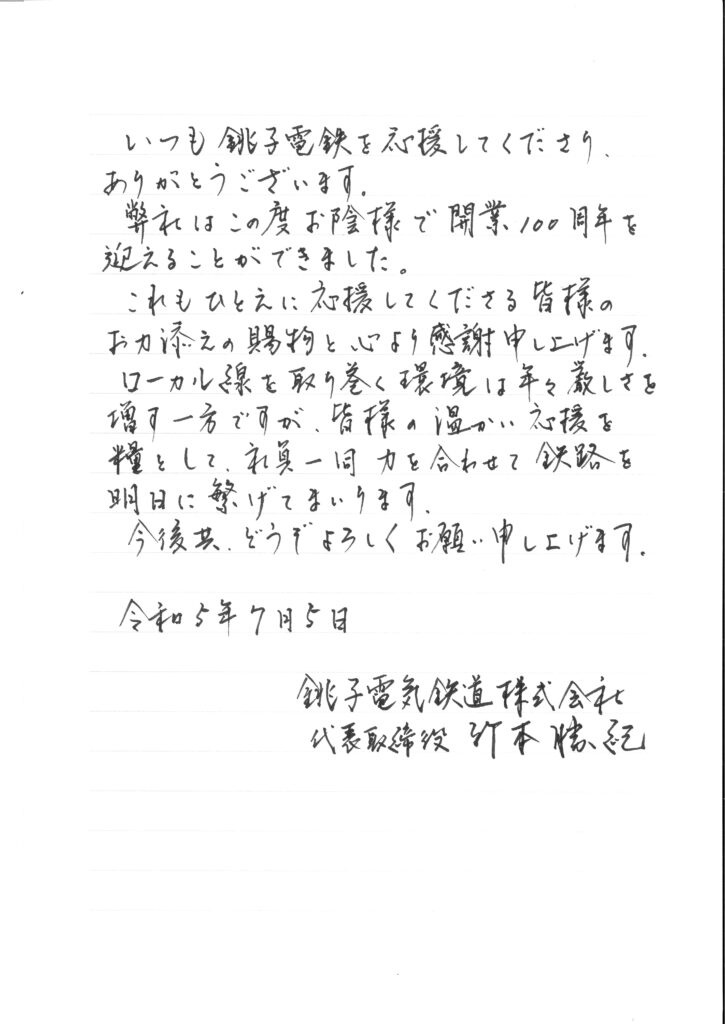 いつも銚子電鉄を応援してくださり、
ありがとうございます。
弊社はこの度お陰様で開業100周年を
迎えることができました。
これもひとえに応援してくださる皆様の
お力添えの賜物と心より感謝申し上げます。
ローカル線を取り巻く環境は年々厳しさを
増す一方ですが、皆様の温かい応援を
糧として、社員一同力を合わせて鉄路を
明日に繋げてまいります。
今後共、どうぞよろしくお願い申し上げます。
令和5年7月5日
銚子電気鉄道株式会社
代表取締役 竹本勝紀